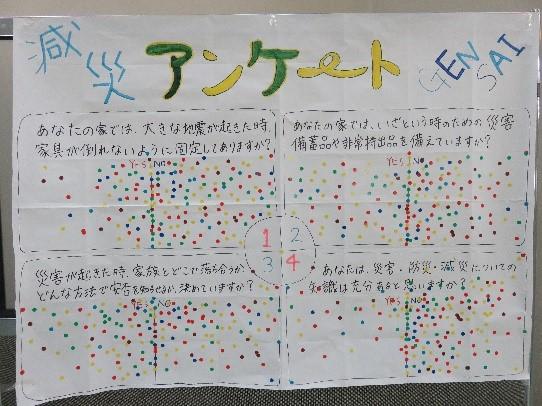 減災アンケート GENSAI
あなたの家では、大きな地震が起きた時、
家具が倒れないように固定してありますか?
YES NO
あなたの家では、いざという時のための災害
備蓄品や非常持出品を備えていますか?
YES NO
1 2
3 4
災害が起きた時、家族とどこで落ち合うか
どんな方法で安否を知らせるか、決めていますか?
YES NO
あなたは、災害・防災・減災についての
知識は充分あると思いますか?
YES NO